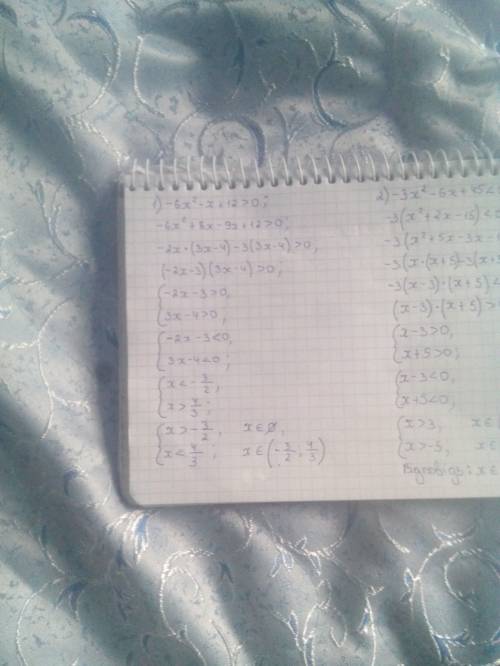 1) -6x² - x + 12 > 0;
-6x² + 8x - 9x + 12 > 0;
-2x · (3x - 4) - 3(3x - 4) > 0,
(-2x - 3)(3x - 4) > 0;
{-2x - 3 > 0,
{3x - 4 > 0;
{-2x - 3 < 0,
{3x - 4 < 0;
{x < -3/2,
{x > 4/3;
{x > -3/2, x ∈ ∅,
{x < 4/3; x ∈ (-3/2; 4/3)
2) -3x² - 6x + 45 <
-3(x² + 2x - 15) <
-3(x² + 5x - 3x -
-3(x·(x+5) - 3(x+5
-3(x - 3)·(x + 5) <
(x - 3)·(x + 5) >
{x - 3 > 0,
{x + 5 > 0;
{x - 3 < 0,
{x + 5 < 0;
{x > 3, x ∈
{x > -5, x ∈
Відповідь: x ∈